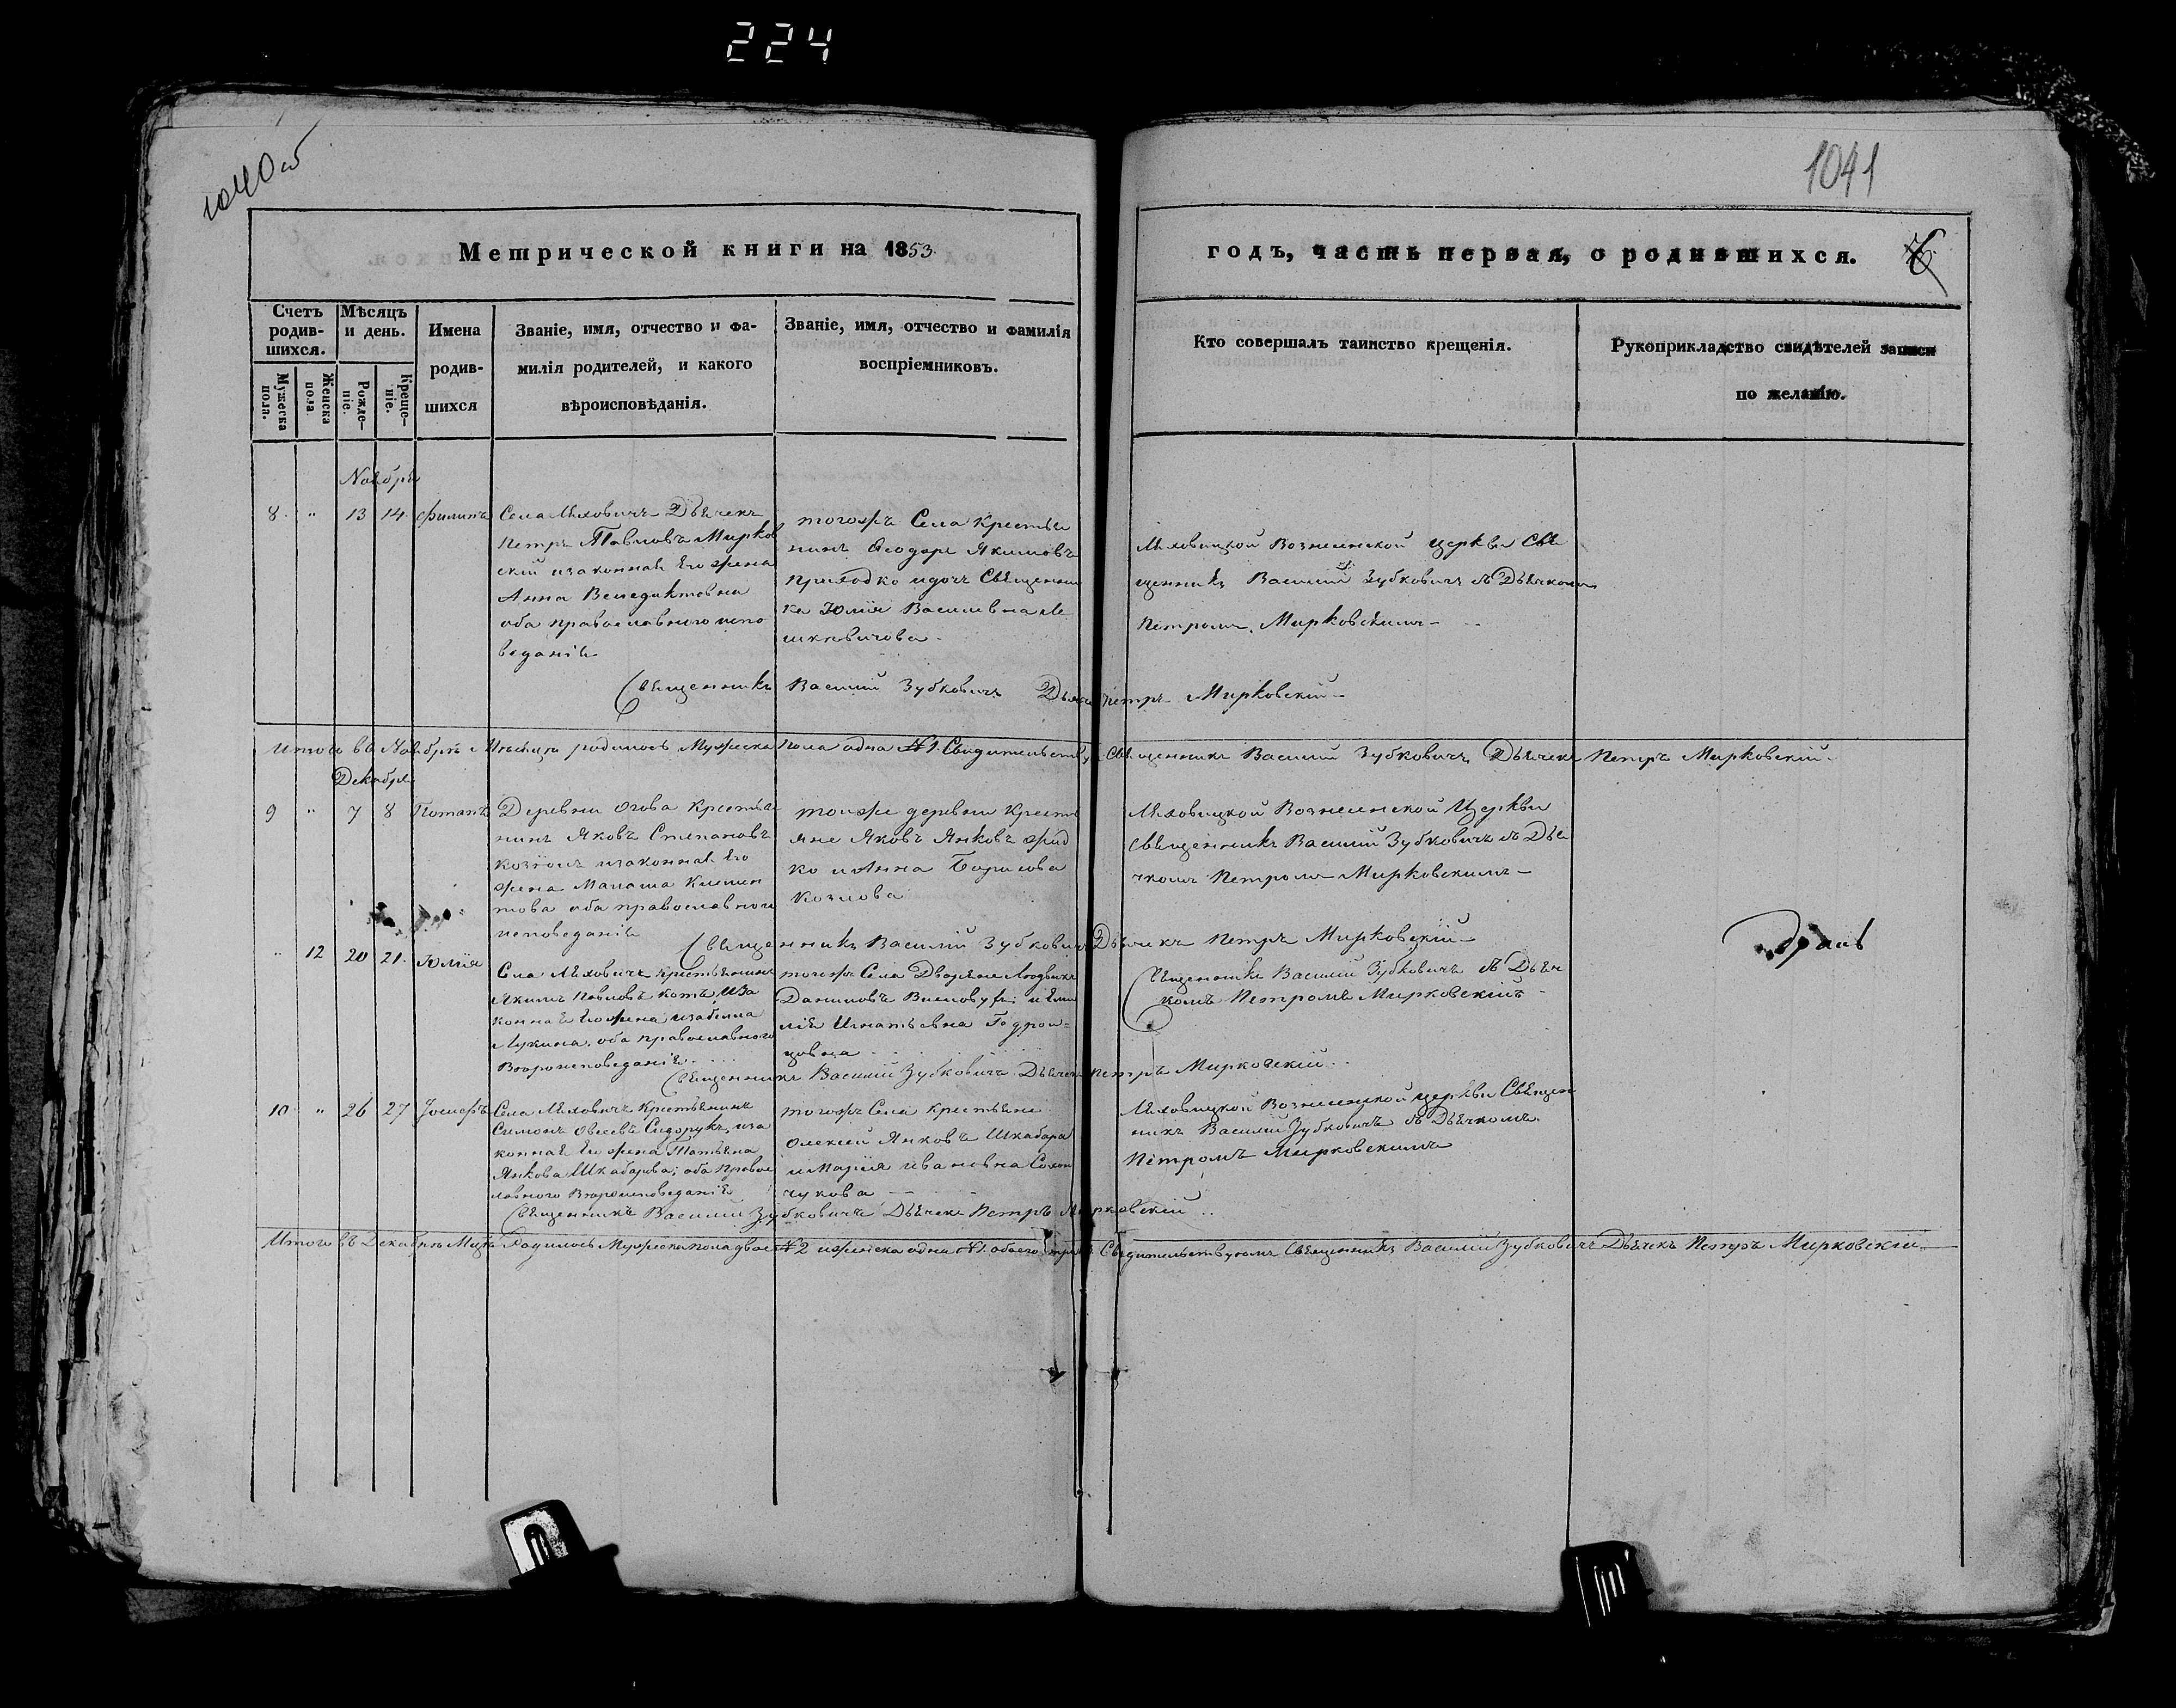 224
1040 об
1041
Метрической книги на 1853.
годъ, часть первая, о родившихся.
Счетъ родившихся.
Мѣсяцъ и день.
Мужеска пола.
Женска пола.
Рожденіе.
Крещеніе.
Имена
родив-
шихся
Званіе, имя, отчество и фа-
милія родителей, и какого
вѣроисповѣданія.
Званіе, имя, отчество и фамилія
воспріемниковъ.
Кто совершалъ таинство крещенія.
Рукоприкладство свидѣтелей записи
по желанію.
Ноябрь
8 " 13 14 Филипъ
Села Ляховичъ Дьячекъ
Петръ Павловъ Мирков
скій изаконная Его жена
Анна Венедиктовна
оба православного испо
веданія
тогожъ Села Крестья
нинъ Ѳеодоръ Якимовъ
Приходко идочъ Священни
ка Юлія Василевна
Ляховицкой Вознесенской церкви Свя
щенникъ Василий Зубковичъ съ Дьячкомъ
Петромъ Мирковскимъ
Священникъ Василий Зубковичъ Дьячекъ Петръ Мирковскій
Итого въ Ноябрѣ Мѣсяцѣ родилось Мужеска пола одна №1. Свидительствуемъ Священникъ Василий Зубковичъ Дьячекъ Петръ Мирковскій
Декабря
9 " 7 8 Потапъ
Деревни Огова Крестья
нинъ Яковъ Степановъ
Козломъ изаконная Его
жена Клемен
това оба православного
исповеданія
тоиже деревни Крестья
яне Яковъ Янковъ Жид
ко иАнна Борисова
Козлова
Ляховицкой Вознесенской Церкви
Священникъ Василий Зубковичъ съ Дья
чкомъ Петромъ Мирковскимъ
Священникъ Василий Зубковичъ Дьячекъ Петръ Мирковскій
" 12 20 21. Юлія
Села Ляховичъ Крестьянинъ
Якимъ Павловъ Котъ, иза
конная Его жена изабелла
Лукина. оба православного
Вѣроисповеданія
тогожъ Села Дворяне Людвикъ
Даниловъ и Еми
лія Игнатьевна
Священникъ Василий Зубковичъ съ Дьяч
комъ Петромъ Мирковскій
Священникъ Василий Зубковичъ Дьячекъ Петръ Мирковскій
10 " 26 27 Іосифъ
Села Ляховичъ Крестьянинъ
Симонъ Овсеевъ Сидорукъ, иза
конная Его жена Татьяна
Янкова Шкабарова; оба Правос
лавного Вѣроисповеданія
тогожъ Села Крестьяне
Олексей Янковъ Шкабара
и Марія ивановна
чукова
Ляховицкой Вознесенской церкви Священ
никъ Василий Зубковичъ съ Дьячкомъ
Петромъ Мирковскимъ
Священникъ Василий Зубковичъ Дьячекъ Петръ Мирковскій
Итого въ Декабрѣ Родилось Мужеска пола двое №2 иженска одна №1. обоего трое Свидительствуемъ Священникъ Василий Зубковичъ Дьячекъ Петръ Мирковскій